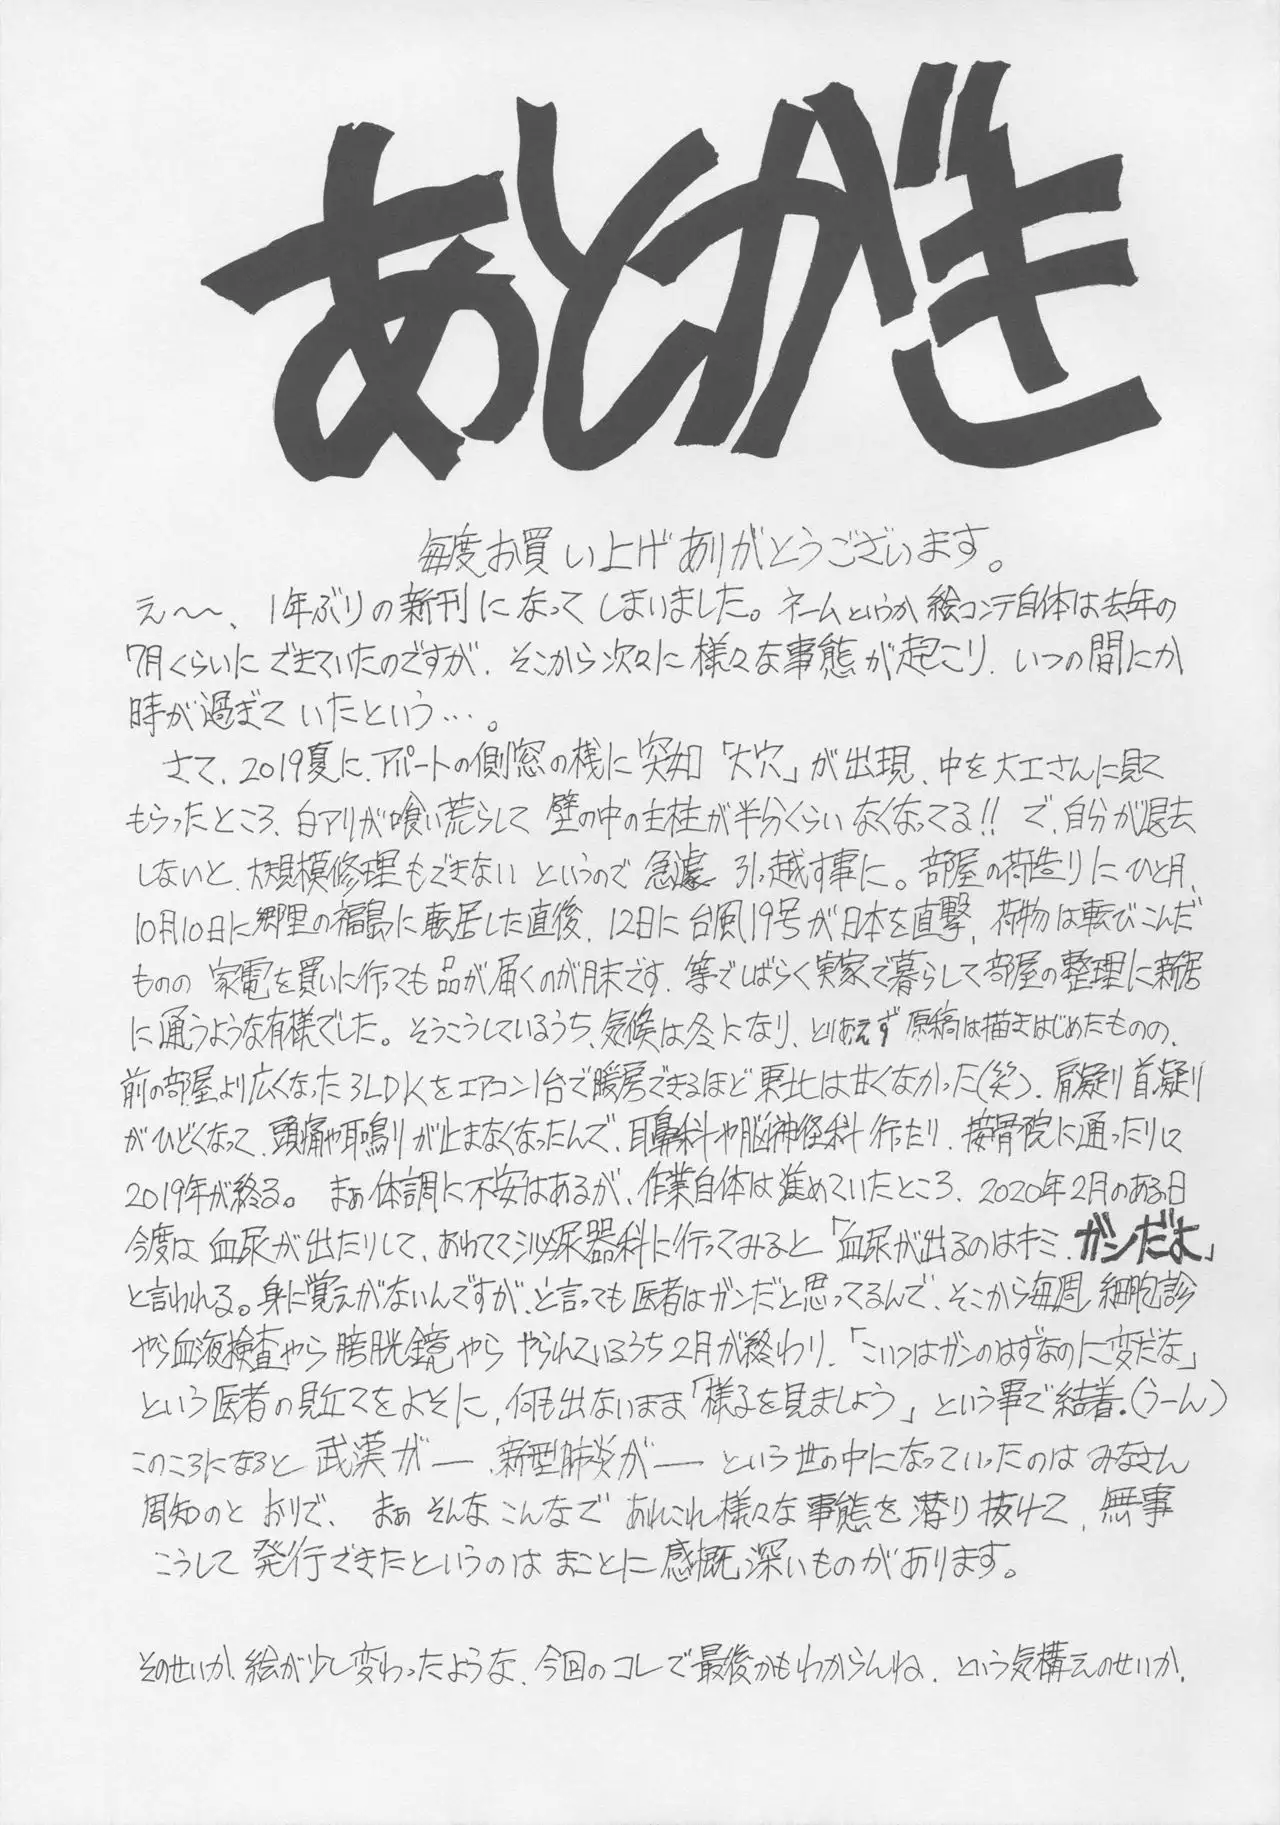 あとがき
毎度お買い上げありがとうございます。
え〜〜、1年ぶりの新刊になってしまいました。ネームというか絵コンテ自体は去年の
7月くらいにできていたのですが、そこから次々に様々な事態が起こり、いつの間にか
時が過ぎていたという…。
さて、2019夏に、アパートの側窓の桟に突如「大穴」が出現、中を大工さんに見て
もらったところ、白アリが喰い荒らして壁の中の主柱が半分くらいなくなってる!!で、自分が退去
しないと、大規模修理もできないというので急遽引っ越す事に。部屋の荷造りにひと月、
10月10日に郷里の福島に転居した直後、12日に台風19号が日本を直撃、荷物は転びこんだ
ものの家電を買いに行っても品が届くのが月末です、等でしばらく実家で暮らして部屋の整理に新居
に通うような有様でした。そうこうしているうち、気候は冬になり、とりあえず原稿は描きはじめたものの、
前の部屋より広くなった3LDKをエアコン1台で暖房できるほど東北は甘くなかった(笑)、肩凝り首凝り
がひどくなって、頭痛や耳鳴りが止まなくなったんで、耳鼻科や脳神経科行ったり、接骨院に通ったりに
2019年が終る。まぁ体調に不安はあるが、作業自体は進めていたところ、2020年2月のある日
今度は血尿が出たりして、あわてて泌尿器科に行ってみると「血尿が出るのはキミ、ガンだよ」
と言われる。身に覚えがないんですが、と言っても医者はガンだと思ってるんで、そこから毎週細胞診
やら血液検査やら膀胱鏡やらやられているうち2月が終わり、「こいつはガンのはずなのに変だな」
という医者の見立てをよそに、何も出ないまま「様子を見ましょう」という事で結着。(うーん)
このころになると武漢がー、新型肺炎がーという世の中になっていったのはみなさん
周知のとおりで、まぁそんなこんなであれこれ様々な事態を潜り抜けて、無事
こうして発行できたというのはまことに感慨深いものがあります。
そのせいか、絵が少し変わったような、今回のコレで最後かもわからんね、という気構えのせいか、